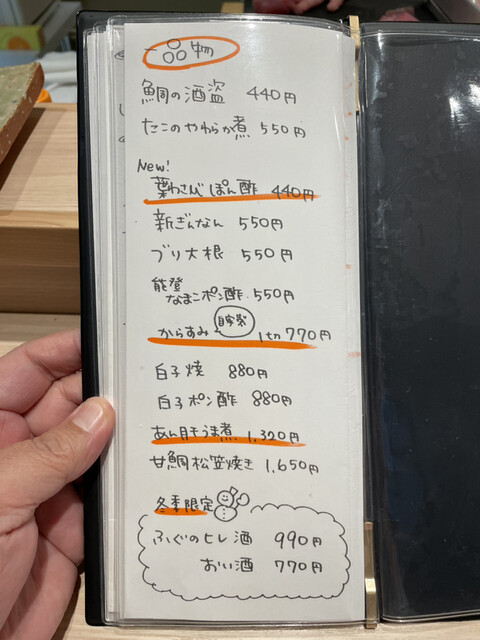 一品物
鯛の酒盗 440円
たこのやわらか煮 550円
New!
葉わさびぽん酢 440円
新ぎんなん 550円
ブリ大根 550円
能登
なまこポン酢 550円
自家製
からすみ 1切770円
白子焼 880円
白子ポン酢 880円
あん肝うま煮 1,320円
甘鯛松笠焼き 1,650円
冬季限定
ふぐのヒレ酒 990円
おい酒 770円